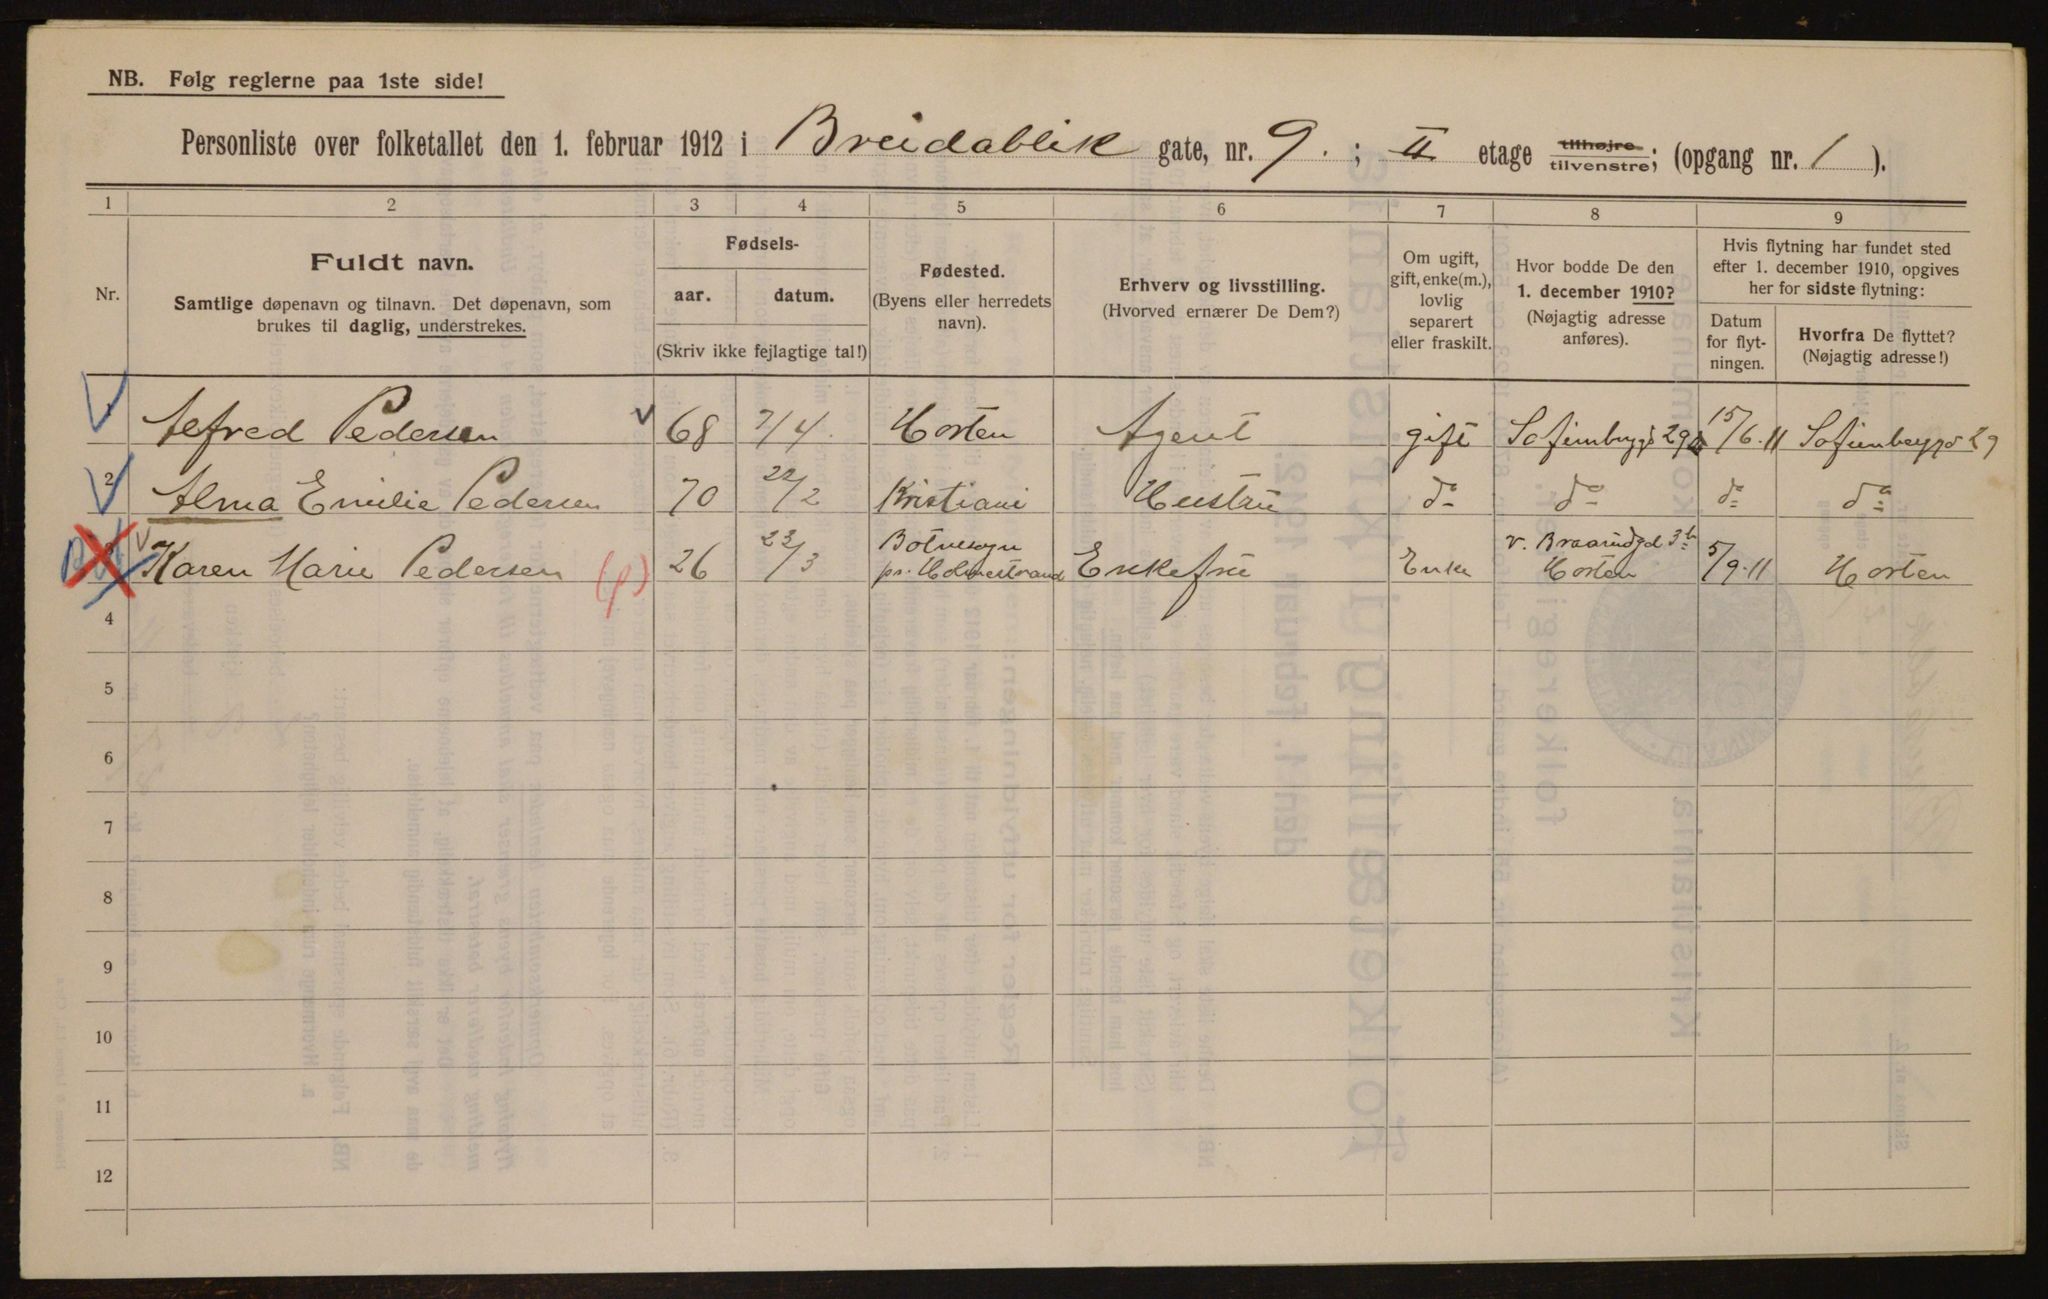 NB. Følg reglerne paa 1ste side!
Personliste over folketallet den 1. februar 1912 i Breidablik gate, nr. 9. ; II etage tilhøjre tilvenstre; (opgang nr. 1 ).
1 2 3 4 5 6 7 8 9
Nr.
Fuldt navn.
Samtlige døpenavn og tilnavn. Det døpenavn, som
brukes til daglig, understrekes.
Fødsels-
aar. datum.
(Skriv ikke fejlagtige tal!)
Fødested.
(Byens eller herredets
navn).
Erhverv og livsstilling.
(Hvorved ernærer De Dem?)
Om ugift,
gift, enke(m.),
lovlig
separert
eller fraskilt.
Hvor bodde De den
1. december 1910?
(Nøjagtig adresse
anføres).
Hvis flytning har fundet sted
efter 1. december 1910, opgives
her for sidste flytning:
Datum
for flyt-
ningen.
Hvorfra De flyttet?
(Nøjagtig adresse!)
Alfred Pedersen 68 7/4. Horten Agent gift Sofienbggd 29 15/6.11 Sofienberggd 29
2 Alma Emilie Pedersen 70 22/2 Kristiani Hustru do do do do
3 Karen Marie Pedersen (f) 26 23/3 Botnesogn pr. Holmestrand Enkefru Enke v. Braarudgd 3b Horten 5/9.11 Horten
4
5
6
7
8
9
10
11
12